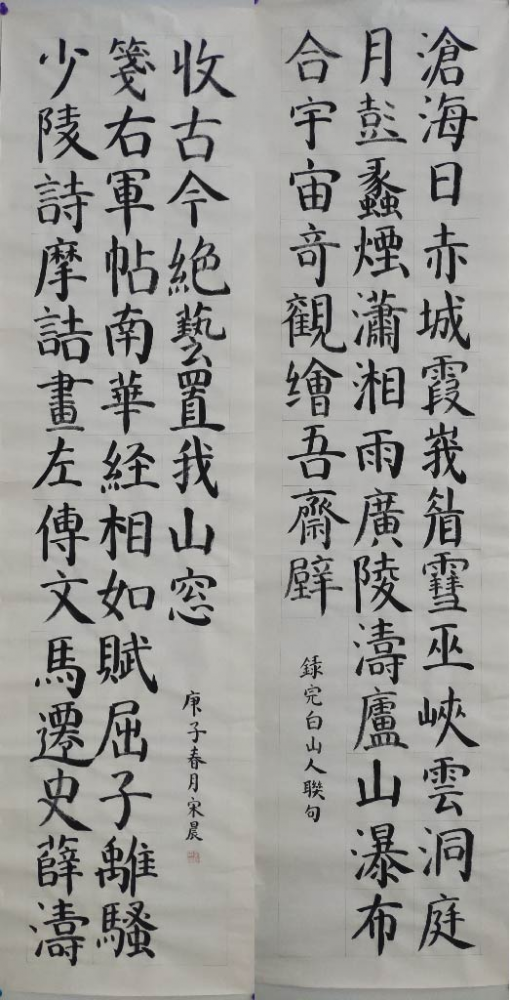 滄海日赤城霞峩睂䨮巫峽雲洞庭
月彭蠡煙瀟湘雨廣陵濤廬山瀑布
合宇宙竒觀繪吾齋壁
録完白山人聯句
少陵詩摩詰畫左傳文馬遷史薛濤
箋右軍帖南華経相如賦屈子離騷
收古今絶藝置我山窓
庚子春月宋晨